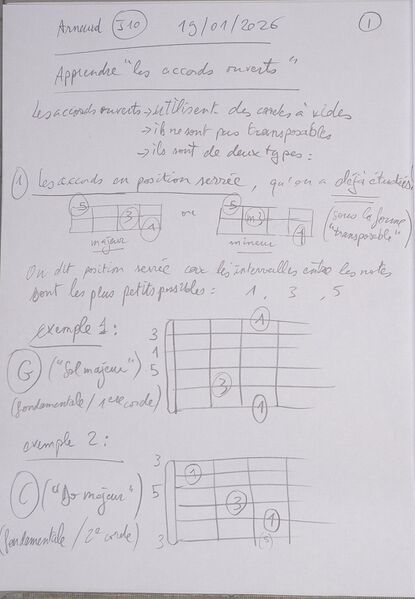 Arnaud J10 19/01/2026 1
Apprendre "les accords ouverts"
Les accords ouverts → utilisent des cordes à vides
→ ils ne sont pas transposables
→ ils sont de deux types :
1 Les accords en position serrée, qu'on a déjà étudiés
sous la forme
("transposable")
5 3 1 ou 5 m3 1
majeur mineur
On dit position serrée car les intervalles entre les notes
sont les plus petits possibles : 1, 3, 5
exemple 1 :
3 1
1
G ("Sol majeur") 5
3
(fondamentale / 1ere corde) 1
exemple 2 :
3
1
C ("Do majeur") 5
3
1
(fondamentale / 2e corde) 3 (5)